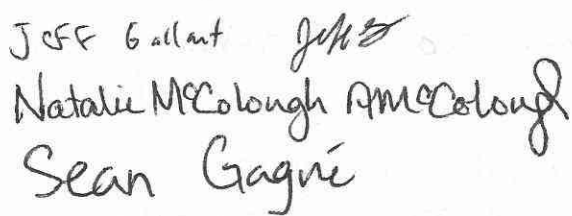 Jeff Gallant
Natalie McColough AMcColough
Sean Gagné